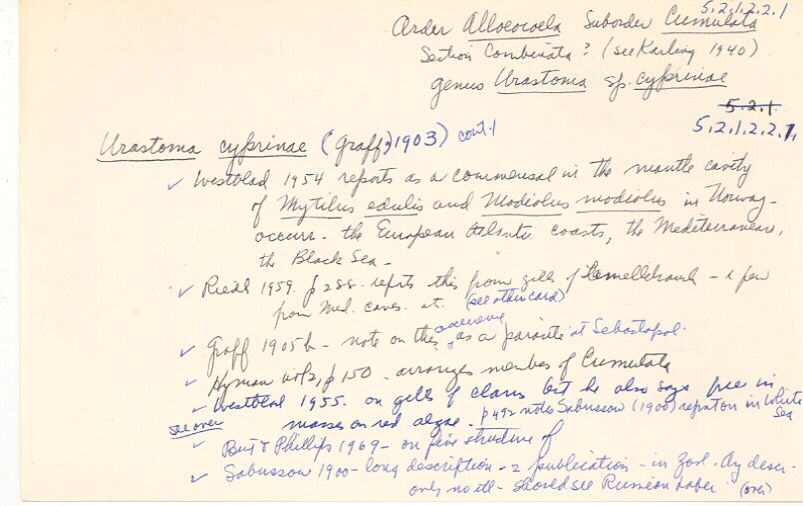 5.2.1.2.2.1
Order Alloeocoela Suborder Cumulata
Section Combinata? (see Karling 1940)
genus Urastoma sp. cyprinae
5.2.1
5.2.1.2.2.1,
Urastoma cyprinae (Graff, 1903) cont.
✓ Westblad 1954 reports as a commensal in the mantle cavity
of Mytilus edulis and Modiolus modiolus in Norway -
occurs - the European Atlantic coasts, the Mediterranean,
the Black Sea -
✓ Riedl 1959. p 288. reports this from gills of Lamellibranch - & few
from Med. caves. (see other card)
✓ Graff 1905b - note on this occurring as a parasite at Sebastopol.
✓ Hyman vol 2, p 150 - arranges members of Cumulata
✓ Westblad 1955. on gills of clams but he also says free in
see over masses on red algae. p 492 notes Sabussow (1900) report on in White
Sea
✓ Burt & Phillips 1969 - on fine structure of
✓ Sabussow 1900 - long description - 2 publication - in Zool. Anz descr.
only no ill - should see Russian paper (over)